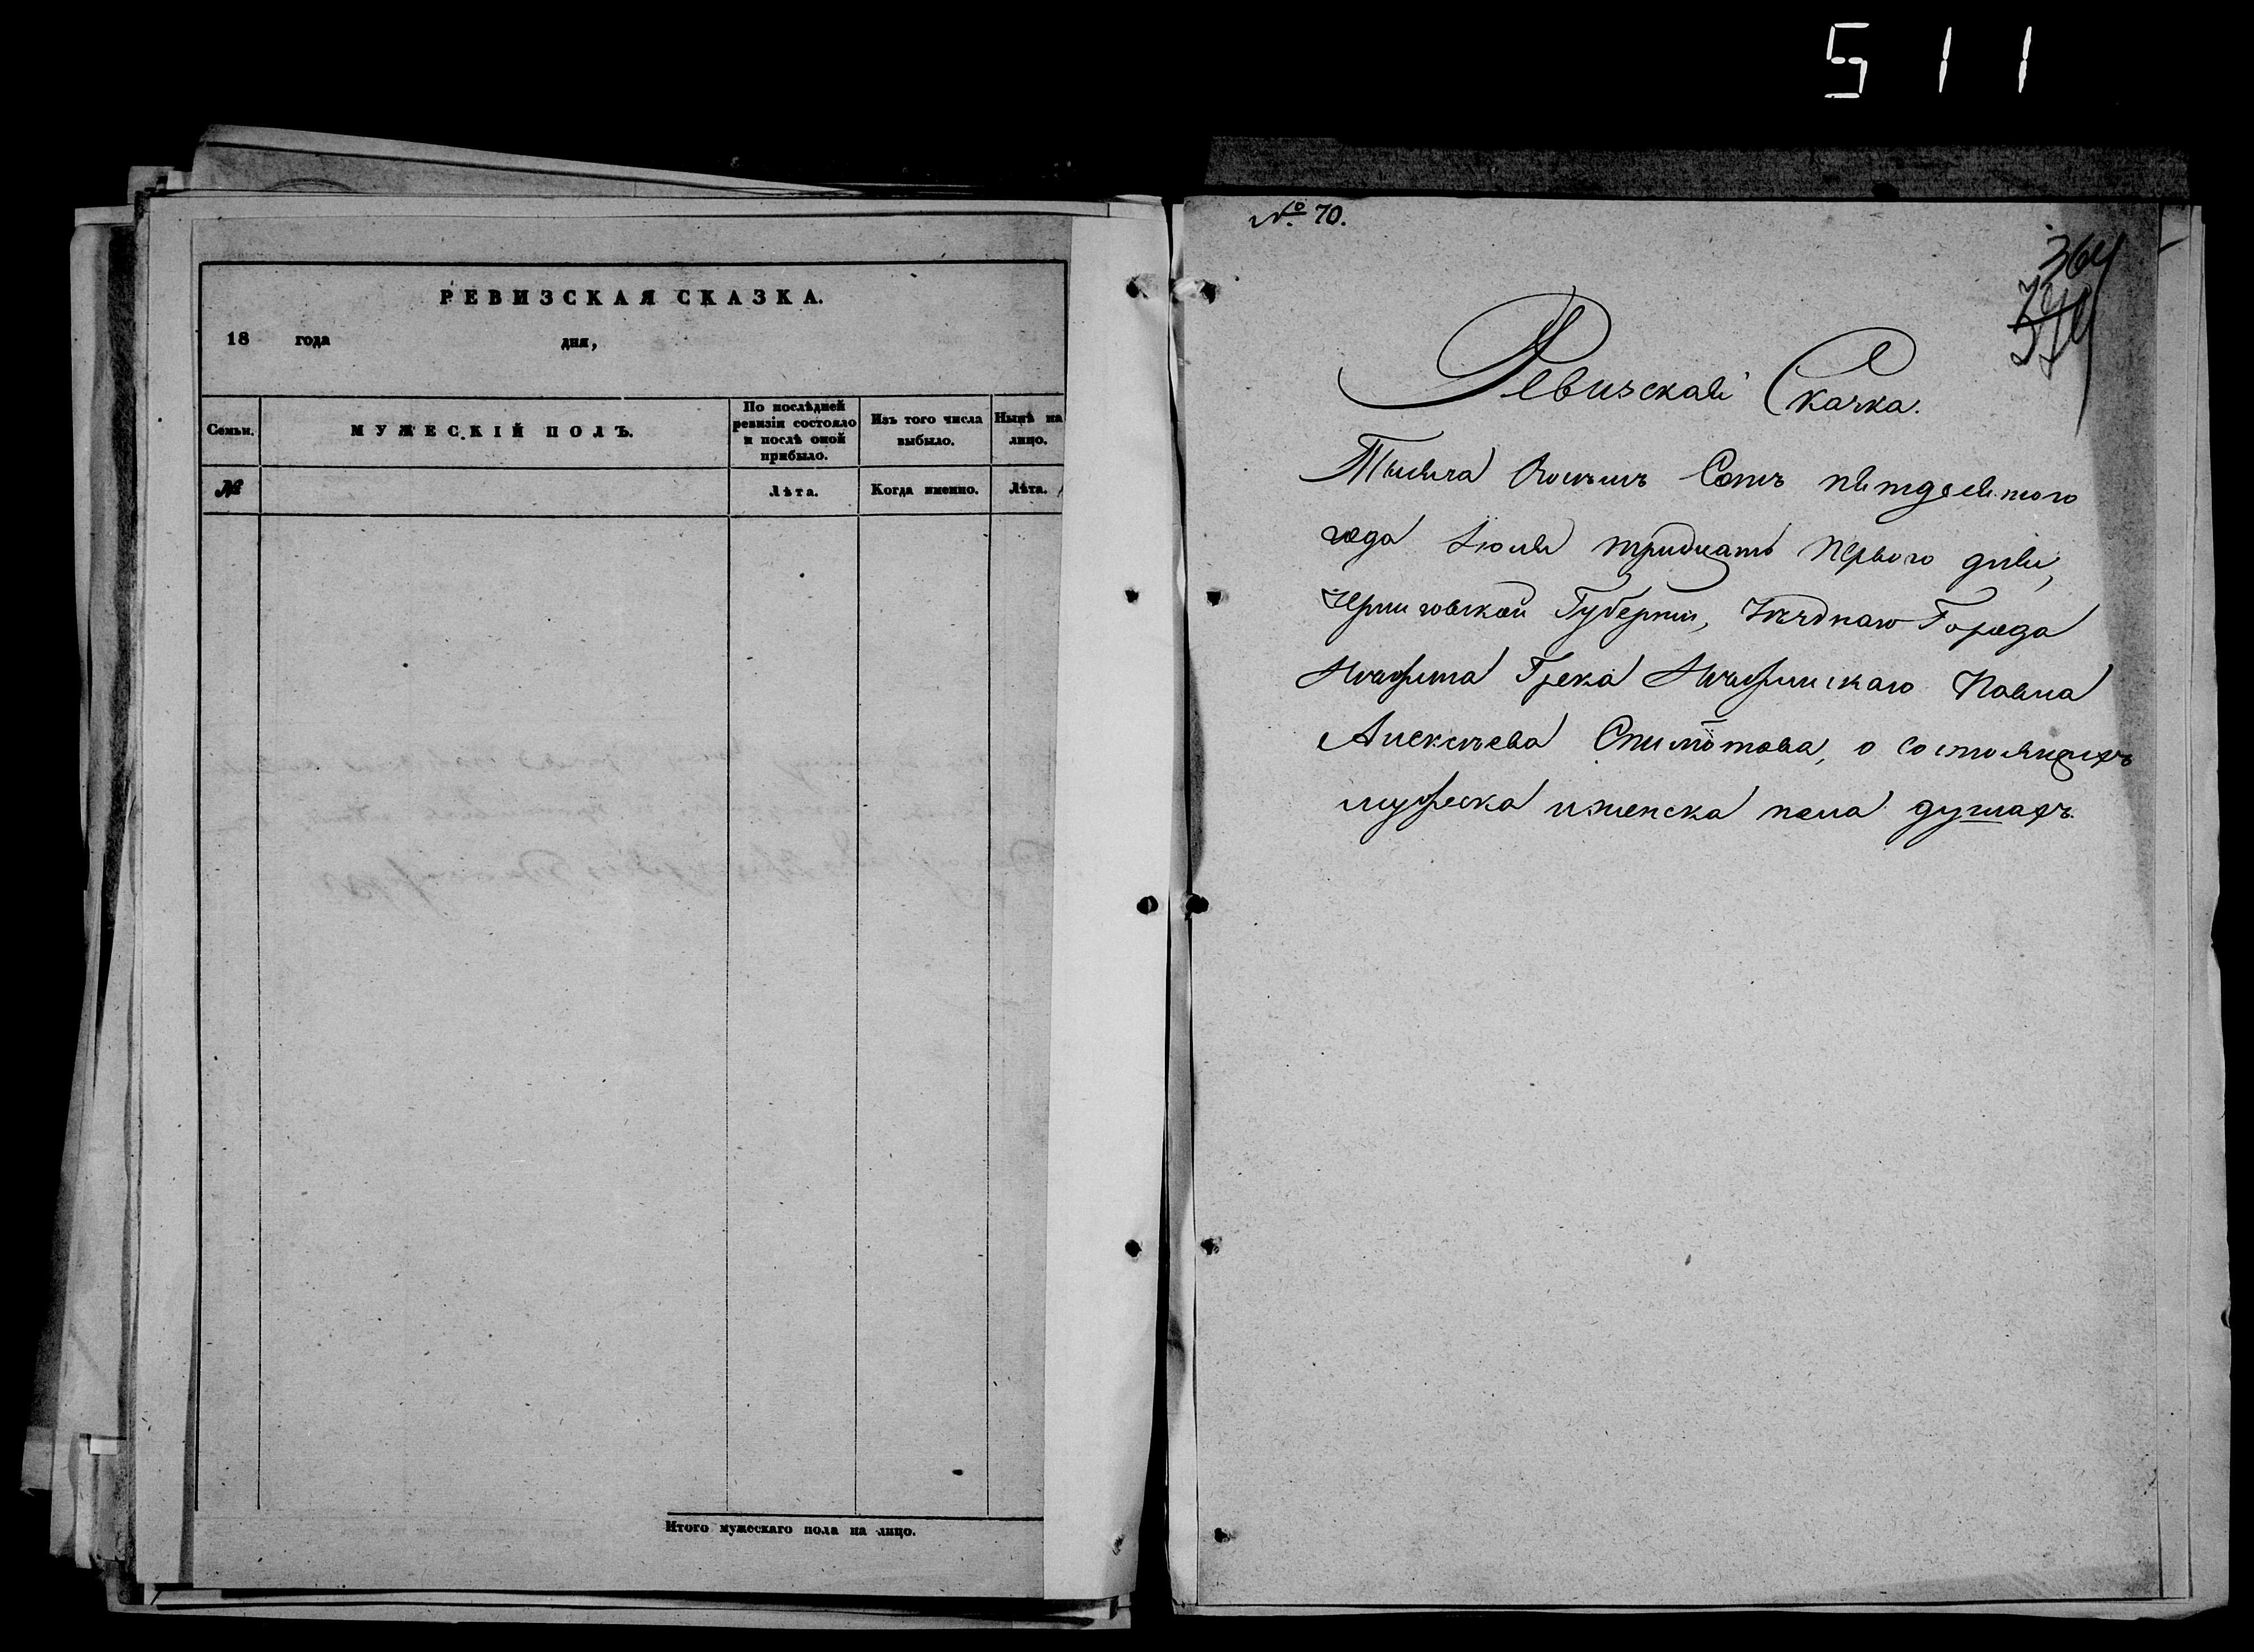 511
РЕВИЗСКАЯ СКАЗКА.
18 года дня,
Семьи.
МУЖЕСКІЙ ПОЛЪ.
По послѣдней ревизіи состояло и послѣ оной прибыло.
Изъ того числа выбыло.
Нынѣ на лицо.
№
Лѣта.
Когда именно.
Лѣта.
Итого мужескаго пола на лицо.
№ 70.
364
Ревизская Сказка.
Тысяча восемъ Сотъ пятдесятого
года Іюля тридцать перваго дня,
Черниговской Губерніи, Уѣзднаго Города
Нѣжина Грека Нѣжинскаго Павла
Алексѣева о состоящихъ
мужеска и женска пола душахъ.